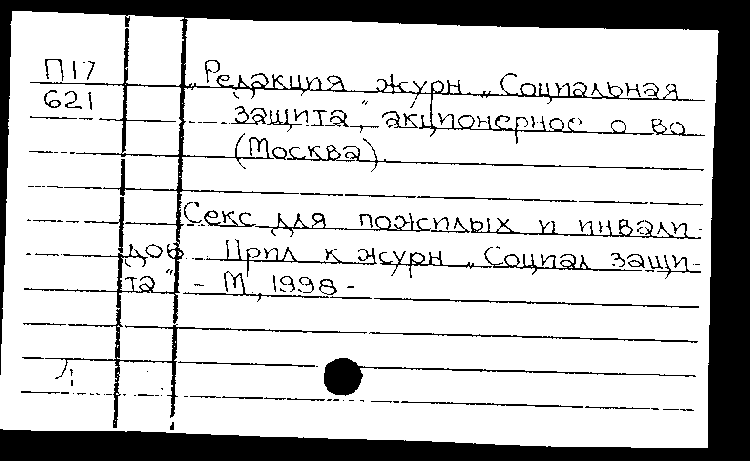 П17 „Редакция журн „Социальная
621 защита", акционерное о во
(Москва)
Секс для пожилых и инвали-
дов Прил к журн „Социал защи-
та" - М, 1998 -